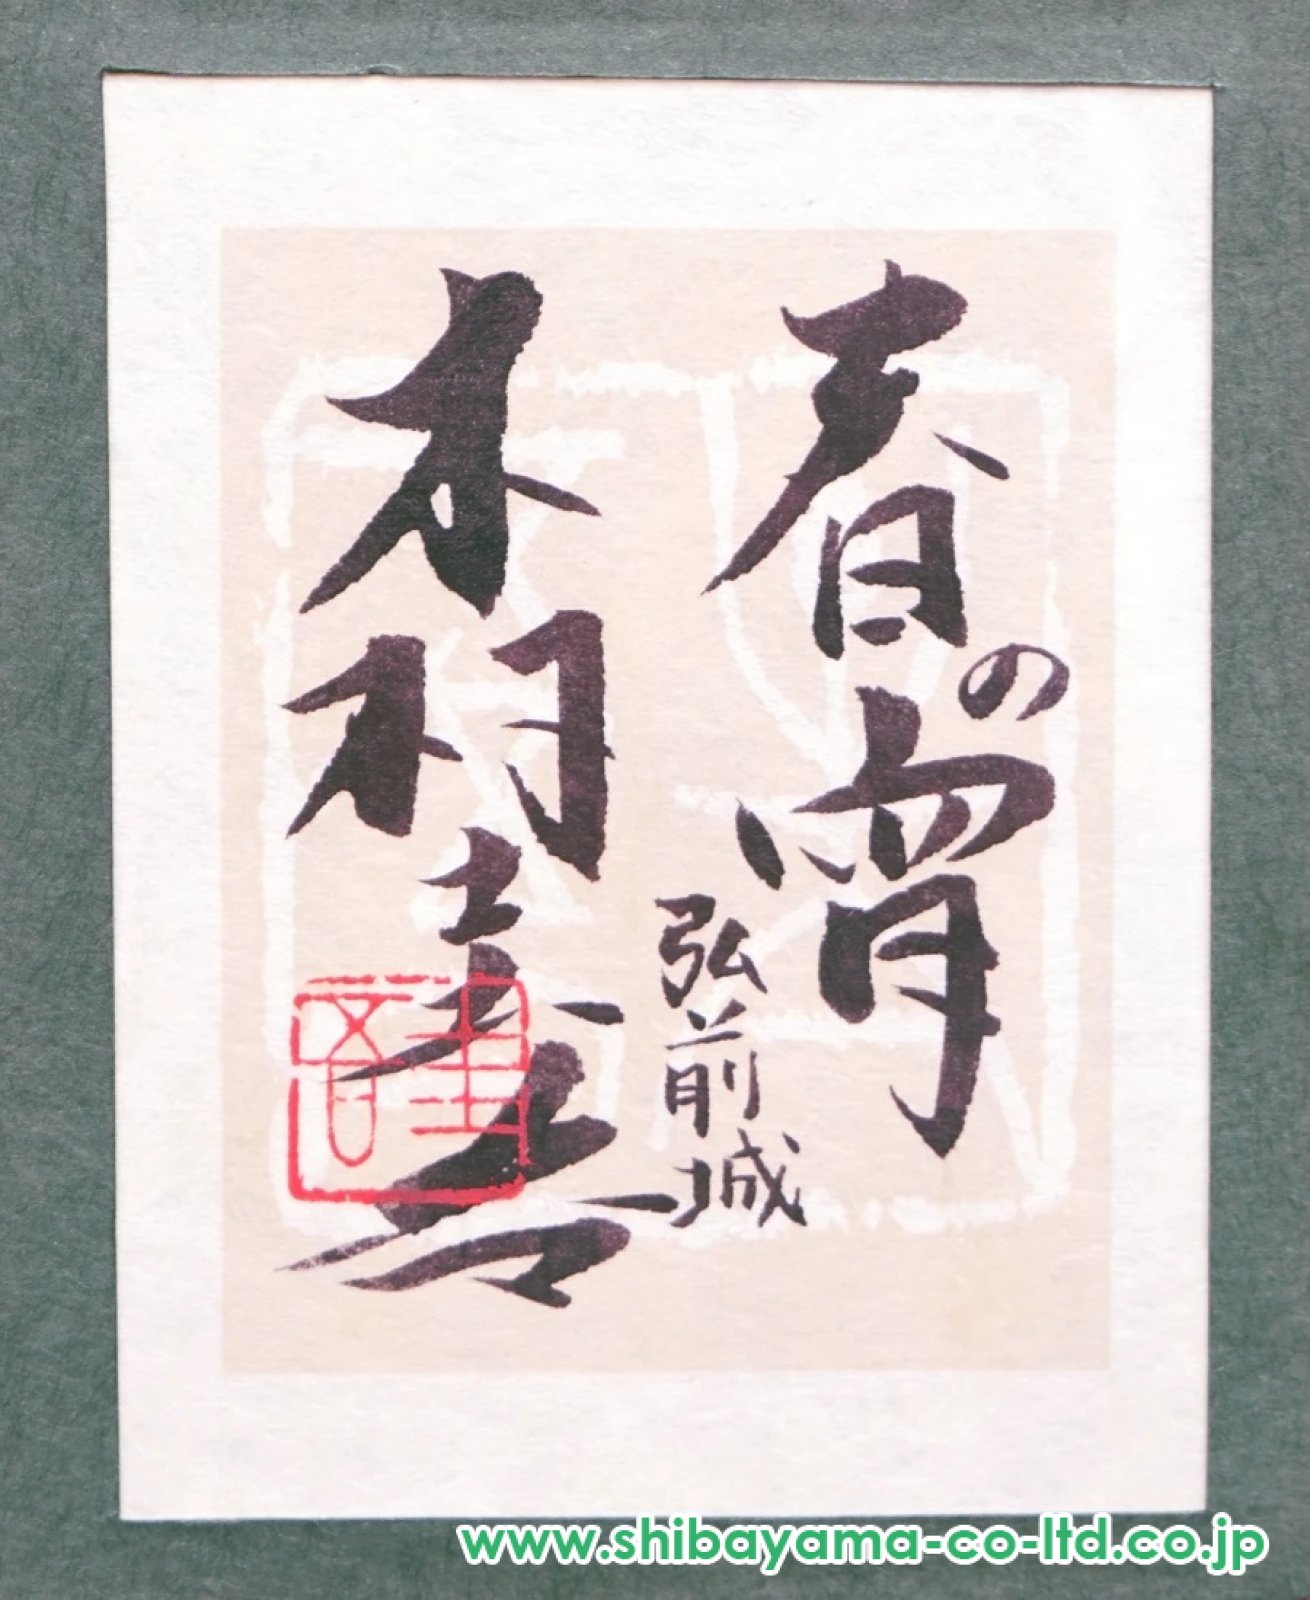 春の宵
弘前城
木村圭吾
圭吾
www.shibayama-co-ltd.co.jp